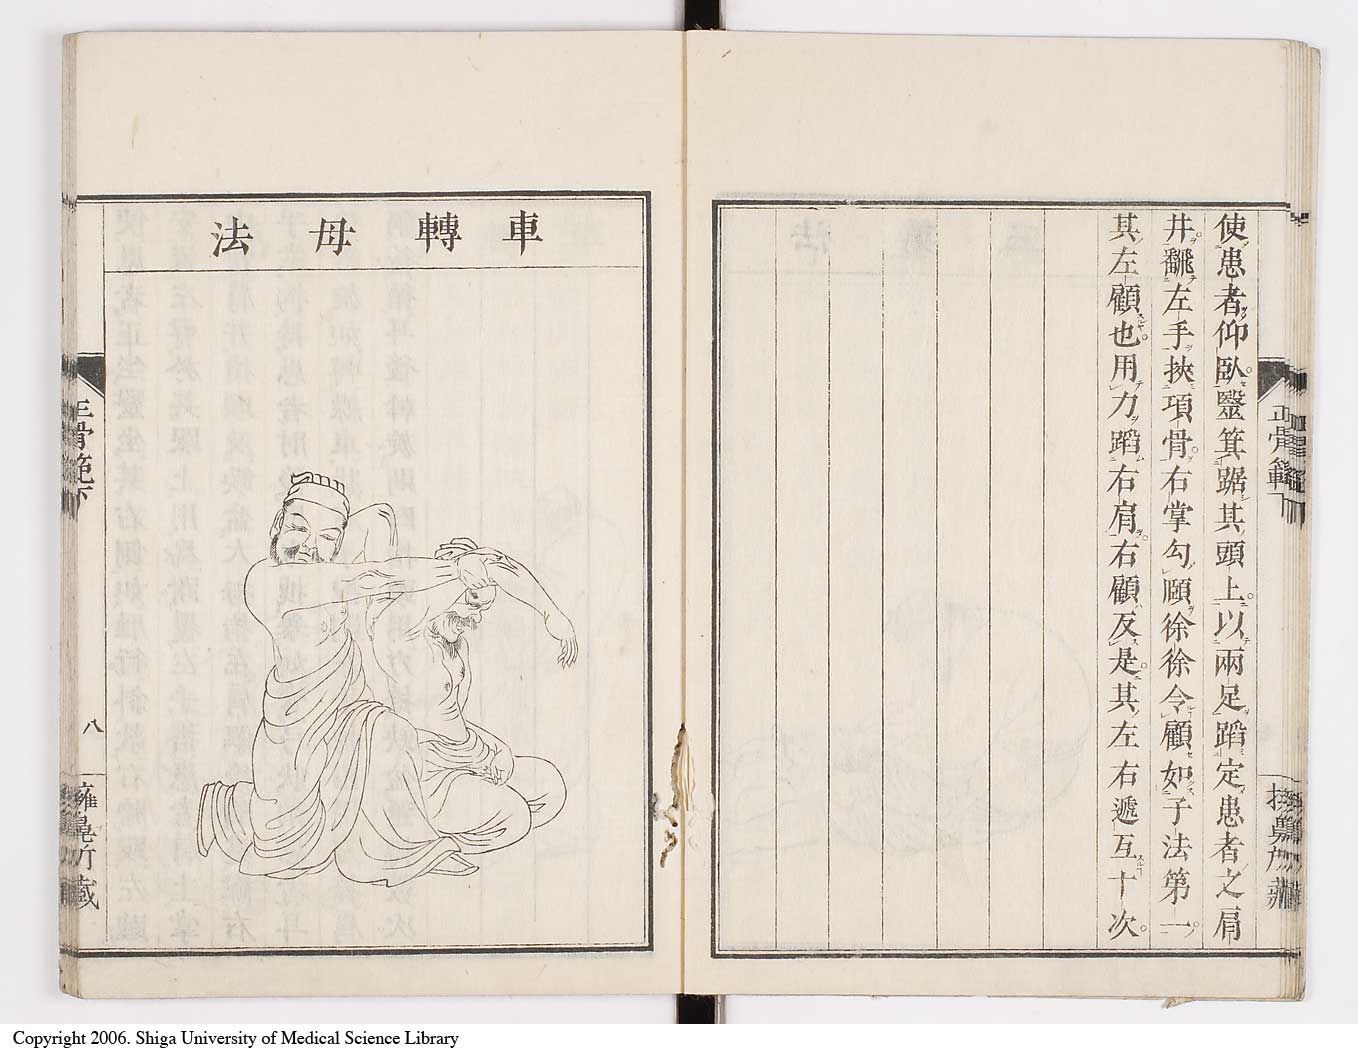 使患者仰臥毉箕踞其頭上以兩足蹈定患者之肩
井飜左手挾項骨右掌勾頤徐徐令顧如子法第一
其左顧也用力蹈右肩右顧反是其左右遞互十次
正骨範下
車轉母法
正骨範下
八
擁鼻所藏
Copyright 2006. Shiga University of Medical Science Library